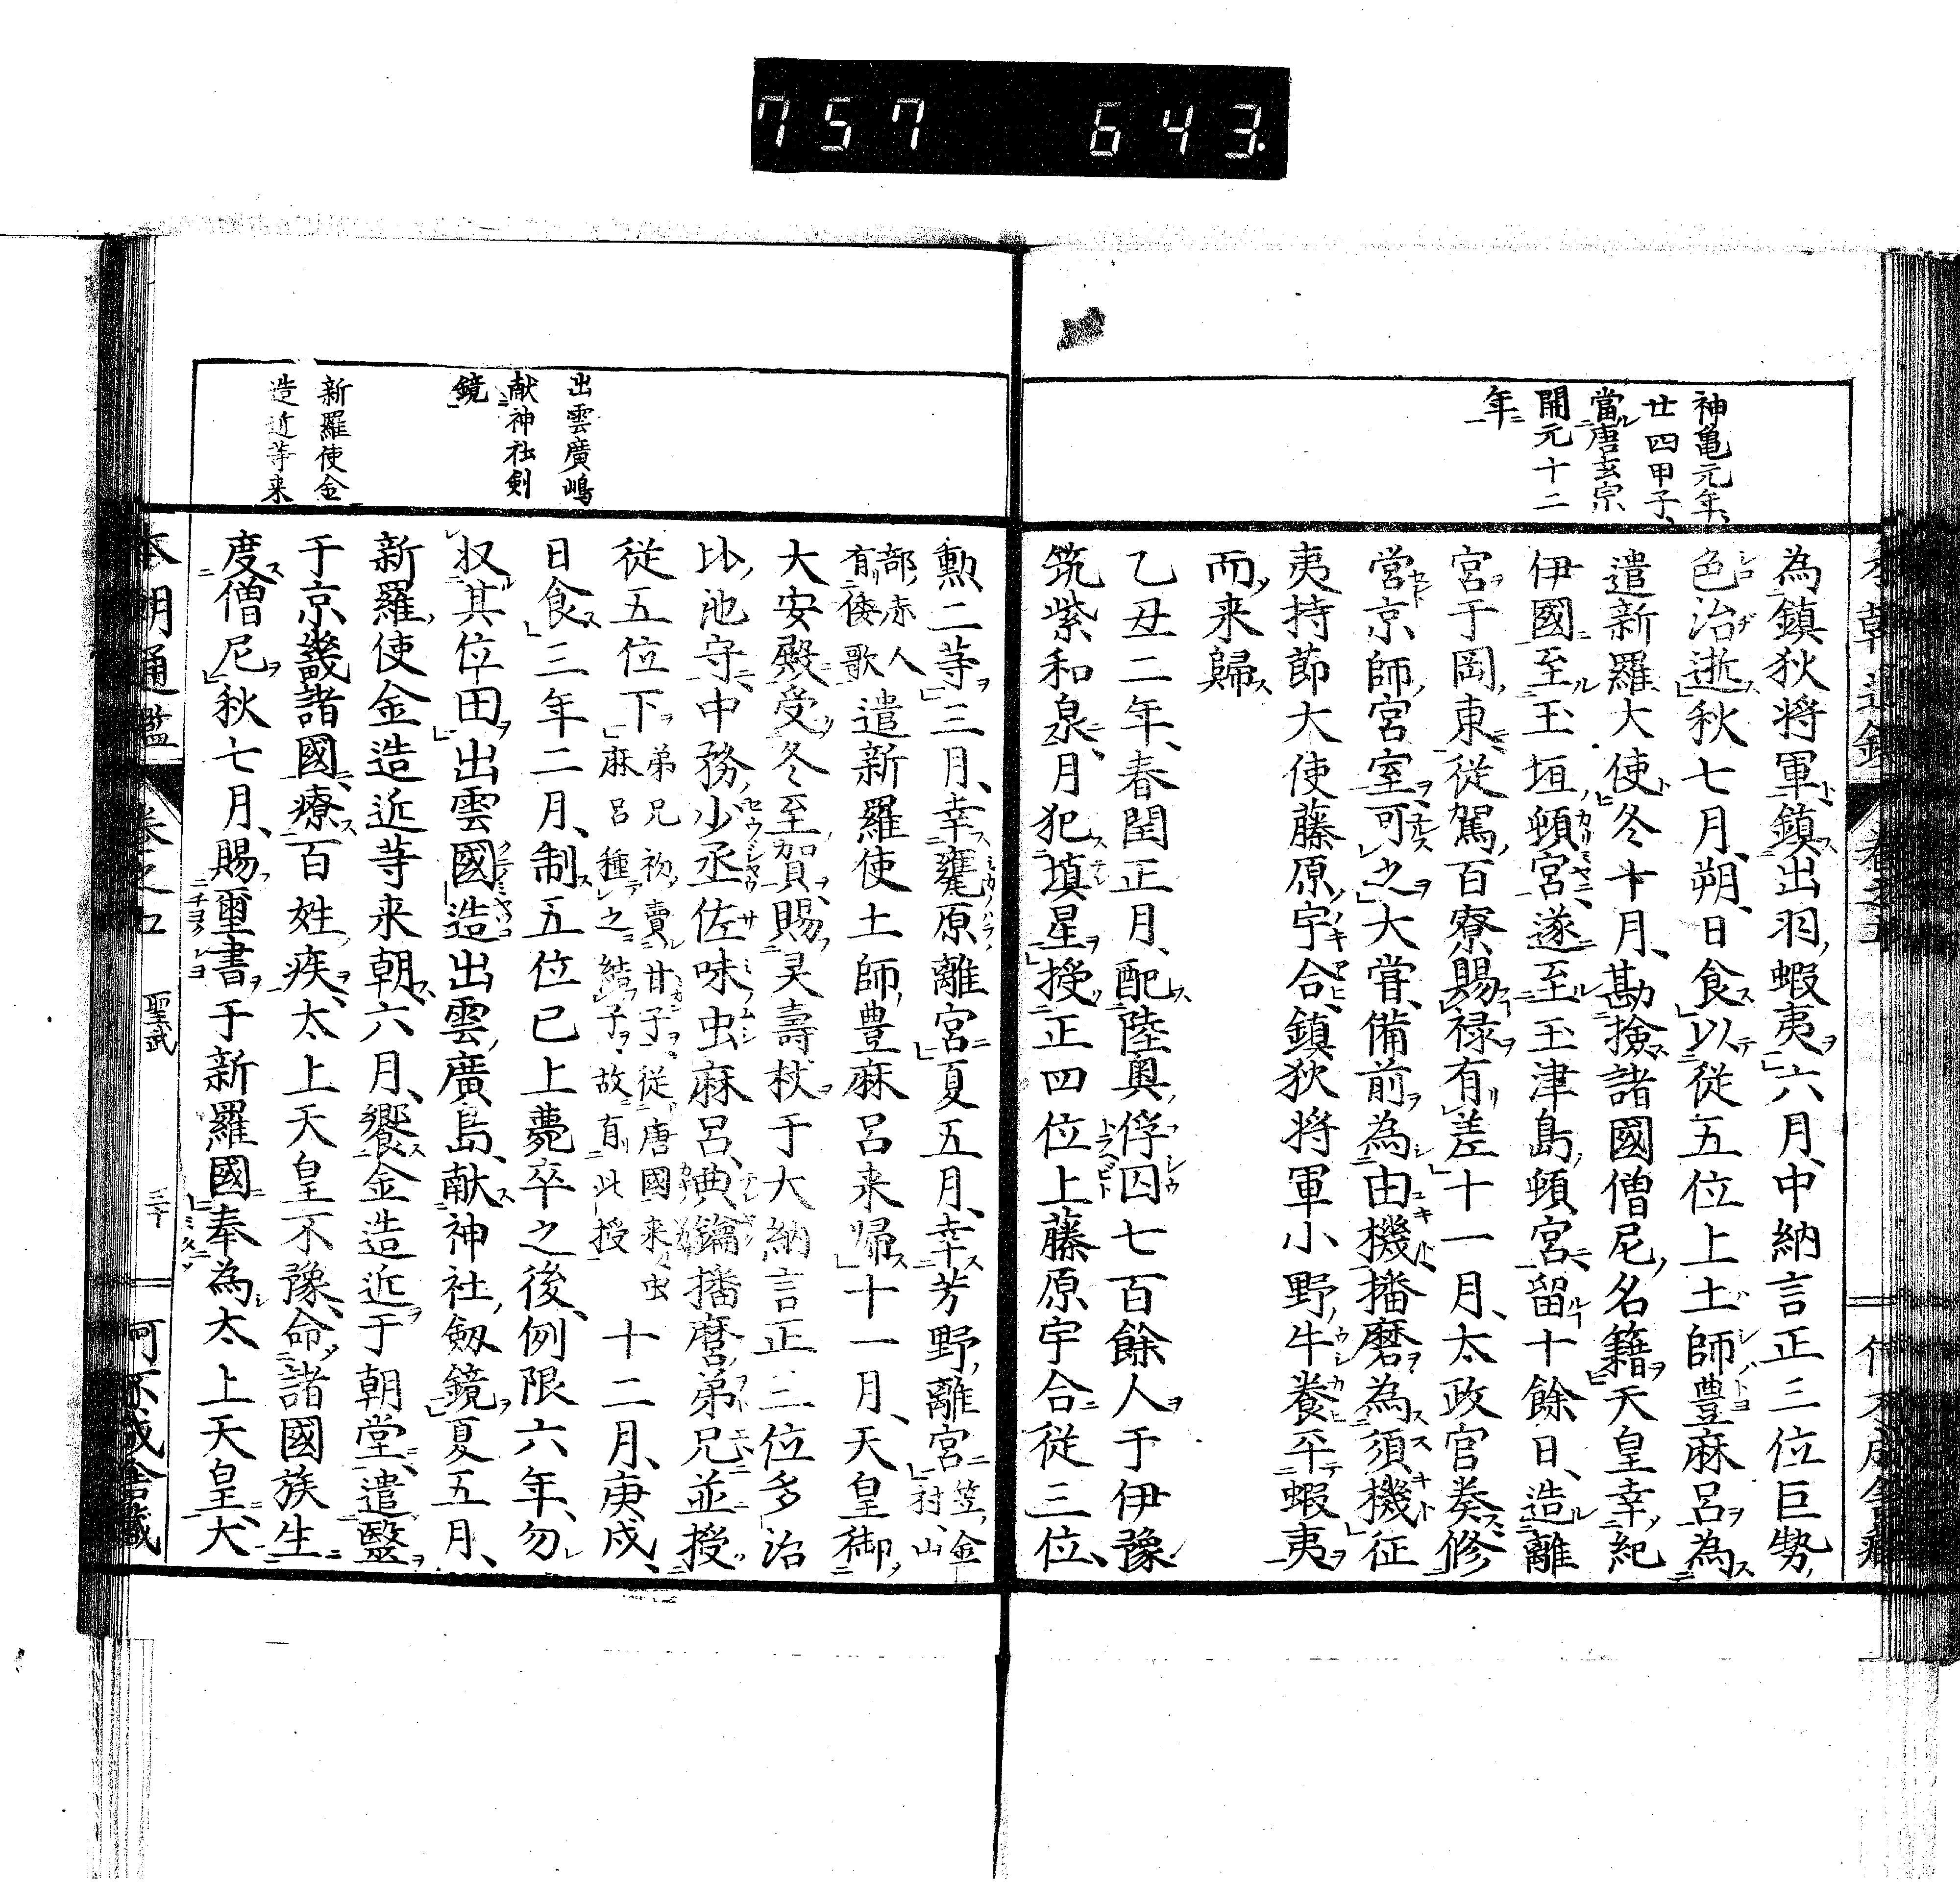 757 643
神亀元年、
廿四甲子、
當唐玄宗
開元十二
年
為鎮狄將軍鎮出羽蝦夷六月、中納言正三位巨勢
色治逝秋七月、朔、日食以從五位上土師豊麻呂為
遣新羅大使冬十月、勘撿諸國僧尼名籍天皇幸紀
伊國至玉垣頓宮遂至玉津島頓宮留十餘日、造離
宮于岡東從駕百寮賜禄有差十一月、太政官奏修
營京師宮室可之大嘗、備前為由機播磨為須機征
夷持節大使藤原宇合、鎮狄将軍小野牛養平蝦夷
而来歸
乙丑二年、春閏正月、配陸奥俘囚七百餘人于伊豫
筑紫和泉、月犯填星授正四位上藤原宇合從三位、
出雲廣嶋
献神社剣
鏡
新羅使金
造近等来
勲二等三月、幸甕原離宮夏五月、幸芳野離宮笠金村、山
部赤人有倭歌遣新羅使土師豊麻呂来帰十一月、天皇御
大安殿受冬至賀賜霊壽杖于大納言正三位多治
比池守、中務少丞佐味虫麻呂、典鑰播磨弟兄並授
從五位下弟兄初賣甘子、從唐國来虫麻呂種之結子、故有此授十二月、庚戍、
日食三年二月、制五位已上薨卒之後、例限六年、勿
収其位田出雲國造出雲廣島、献神社剱鏡夏五月、
新羅使金造近等来朝、六月、饗金造近于朝堂、遣毉
于京畿諸國、療百姓疾、太上天皇不豫、命諸國族生
度僧尼秋七月、賜璽書于新羅國奉為太上天皇、大
本朝通鑑 卷之五 聖武 三十